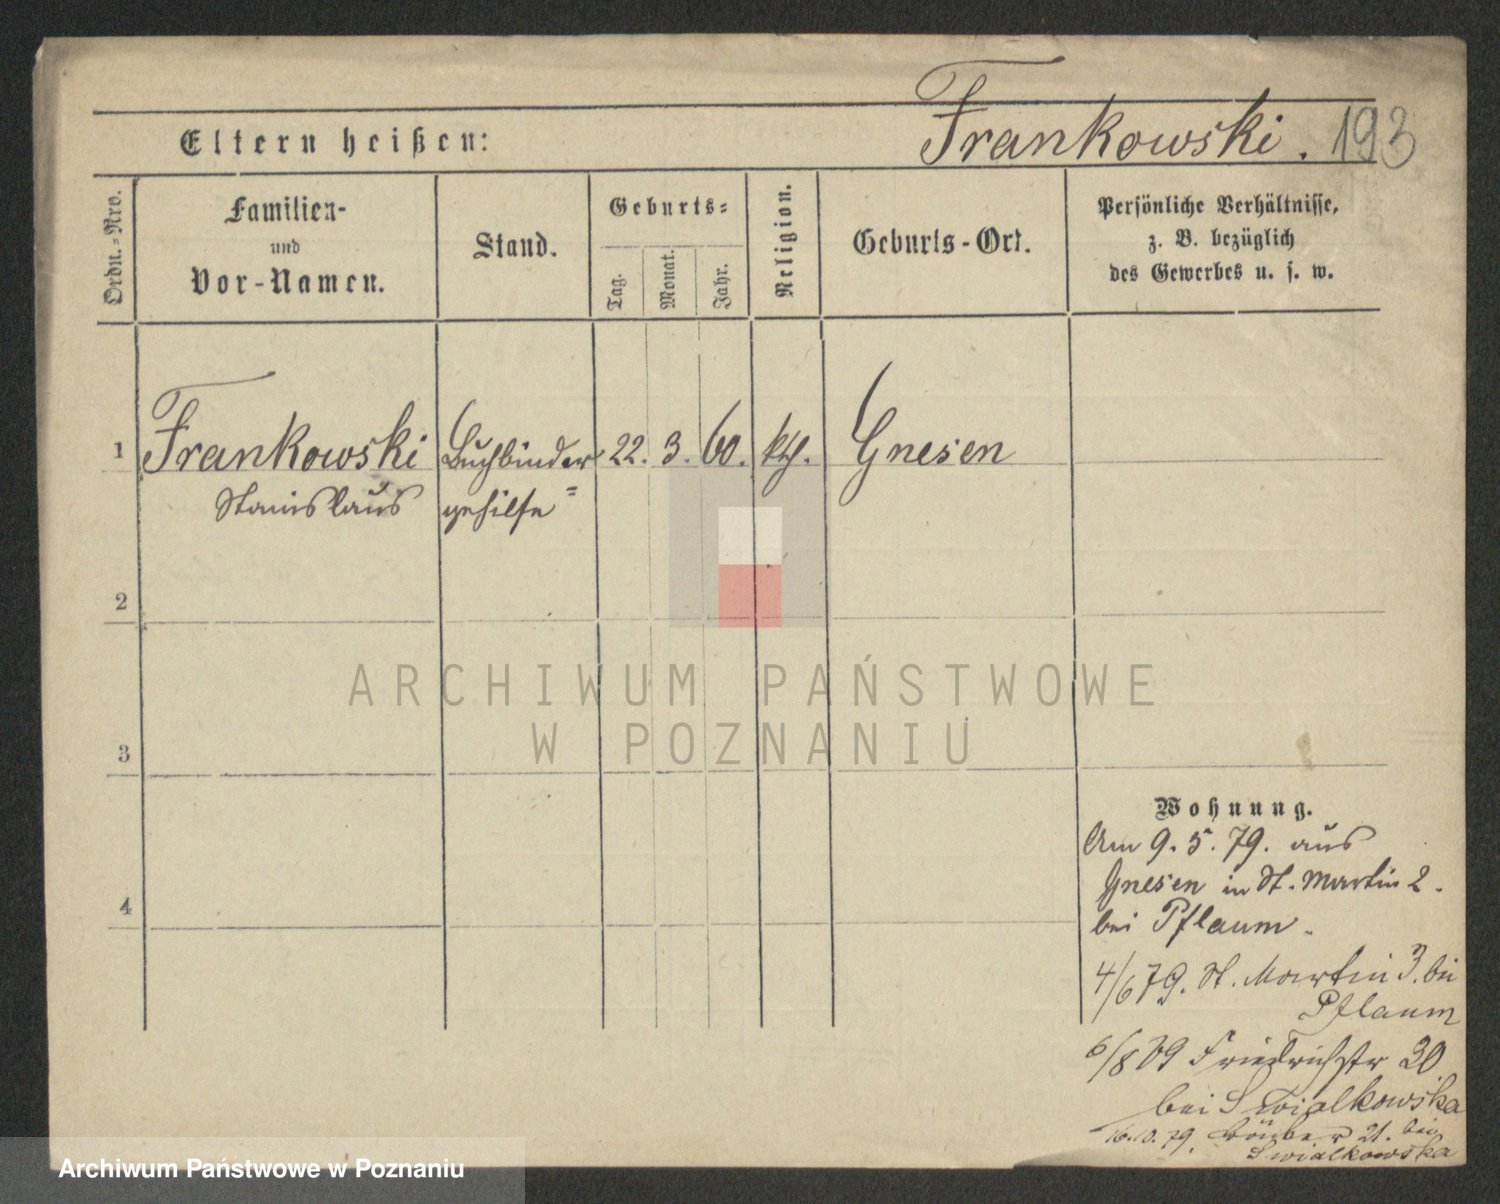 Frankowski. 193
Eltern heißen:
Ordn.=Nro.
Familien-
und
Vor-Namen.
Stand.
Geburts=
Tag.
Monat.
Jahr.
Religion.
Geburts-Ort.
Persönliche Verhältnisse,
z. B. bezüglich
des Gewerbes u. s. w.
1 Frankowski Buchbinder 22. 3. 60. kth. Gnesen
Stanislaus gehilfe
2
3
4
Wohnung.
Am 9. 5. 79. aus
Gnesen in St. Martin 2.
bei Pflaum.
4/6 79. St. Martin 3. bei
Pflaum
6/8 79 Friedrichstr 30
bei Swialkowska
16.10.79. 21. bei
Swialkowska
ARCHIWUM PAŃSTWOWE
W POZNANIU
Archiwum Państwowe w Poznaniu